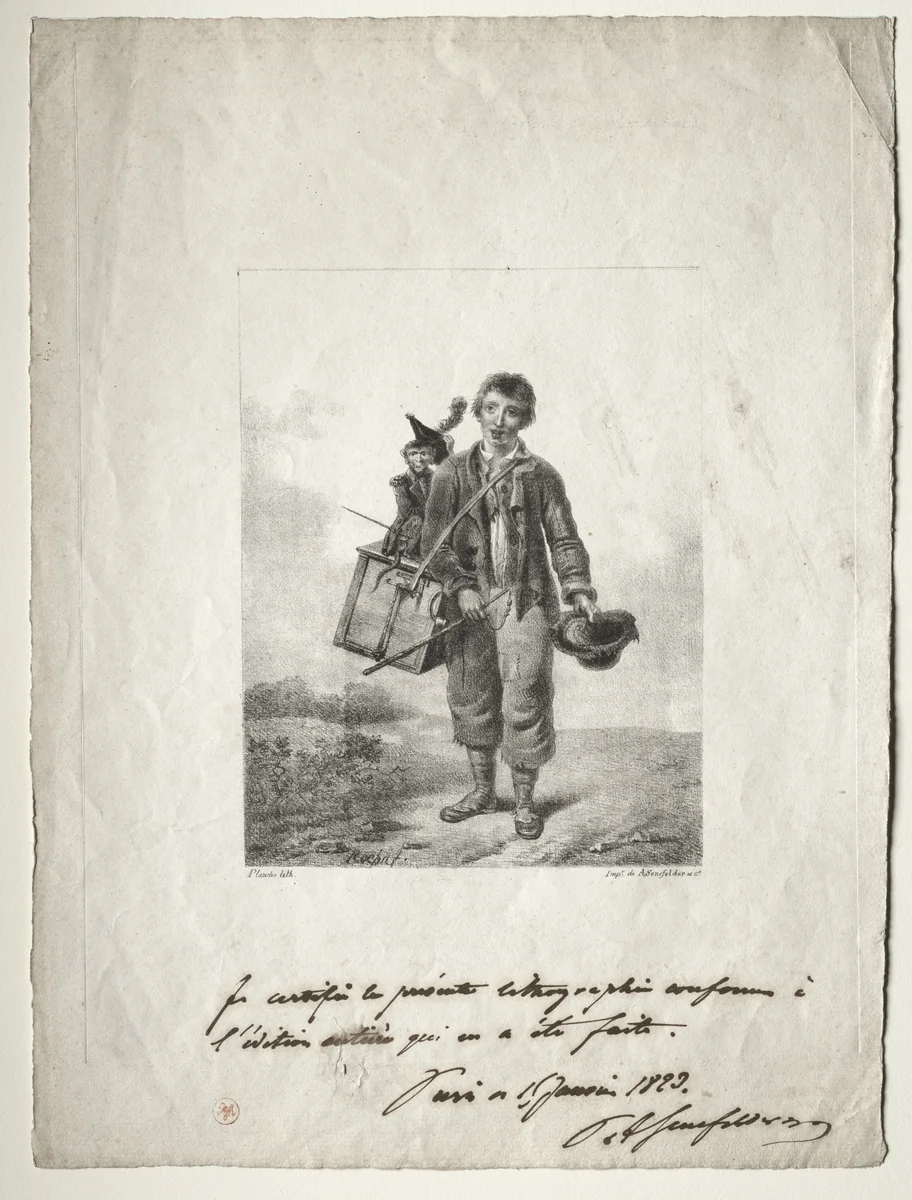 Planche lith.
Impr. de A. Senefelder & Ce
Je certifie la présente lithographie conforme à
l'édition entière qui en a été faite.
Paris 15 Janvier 1823.
A Senefelder